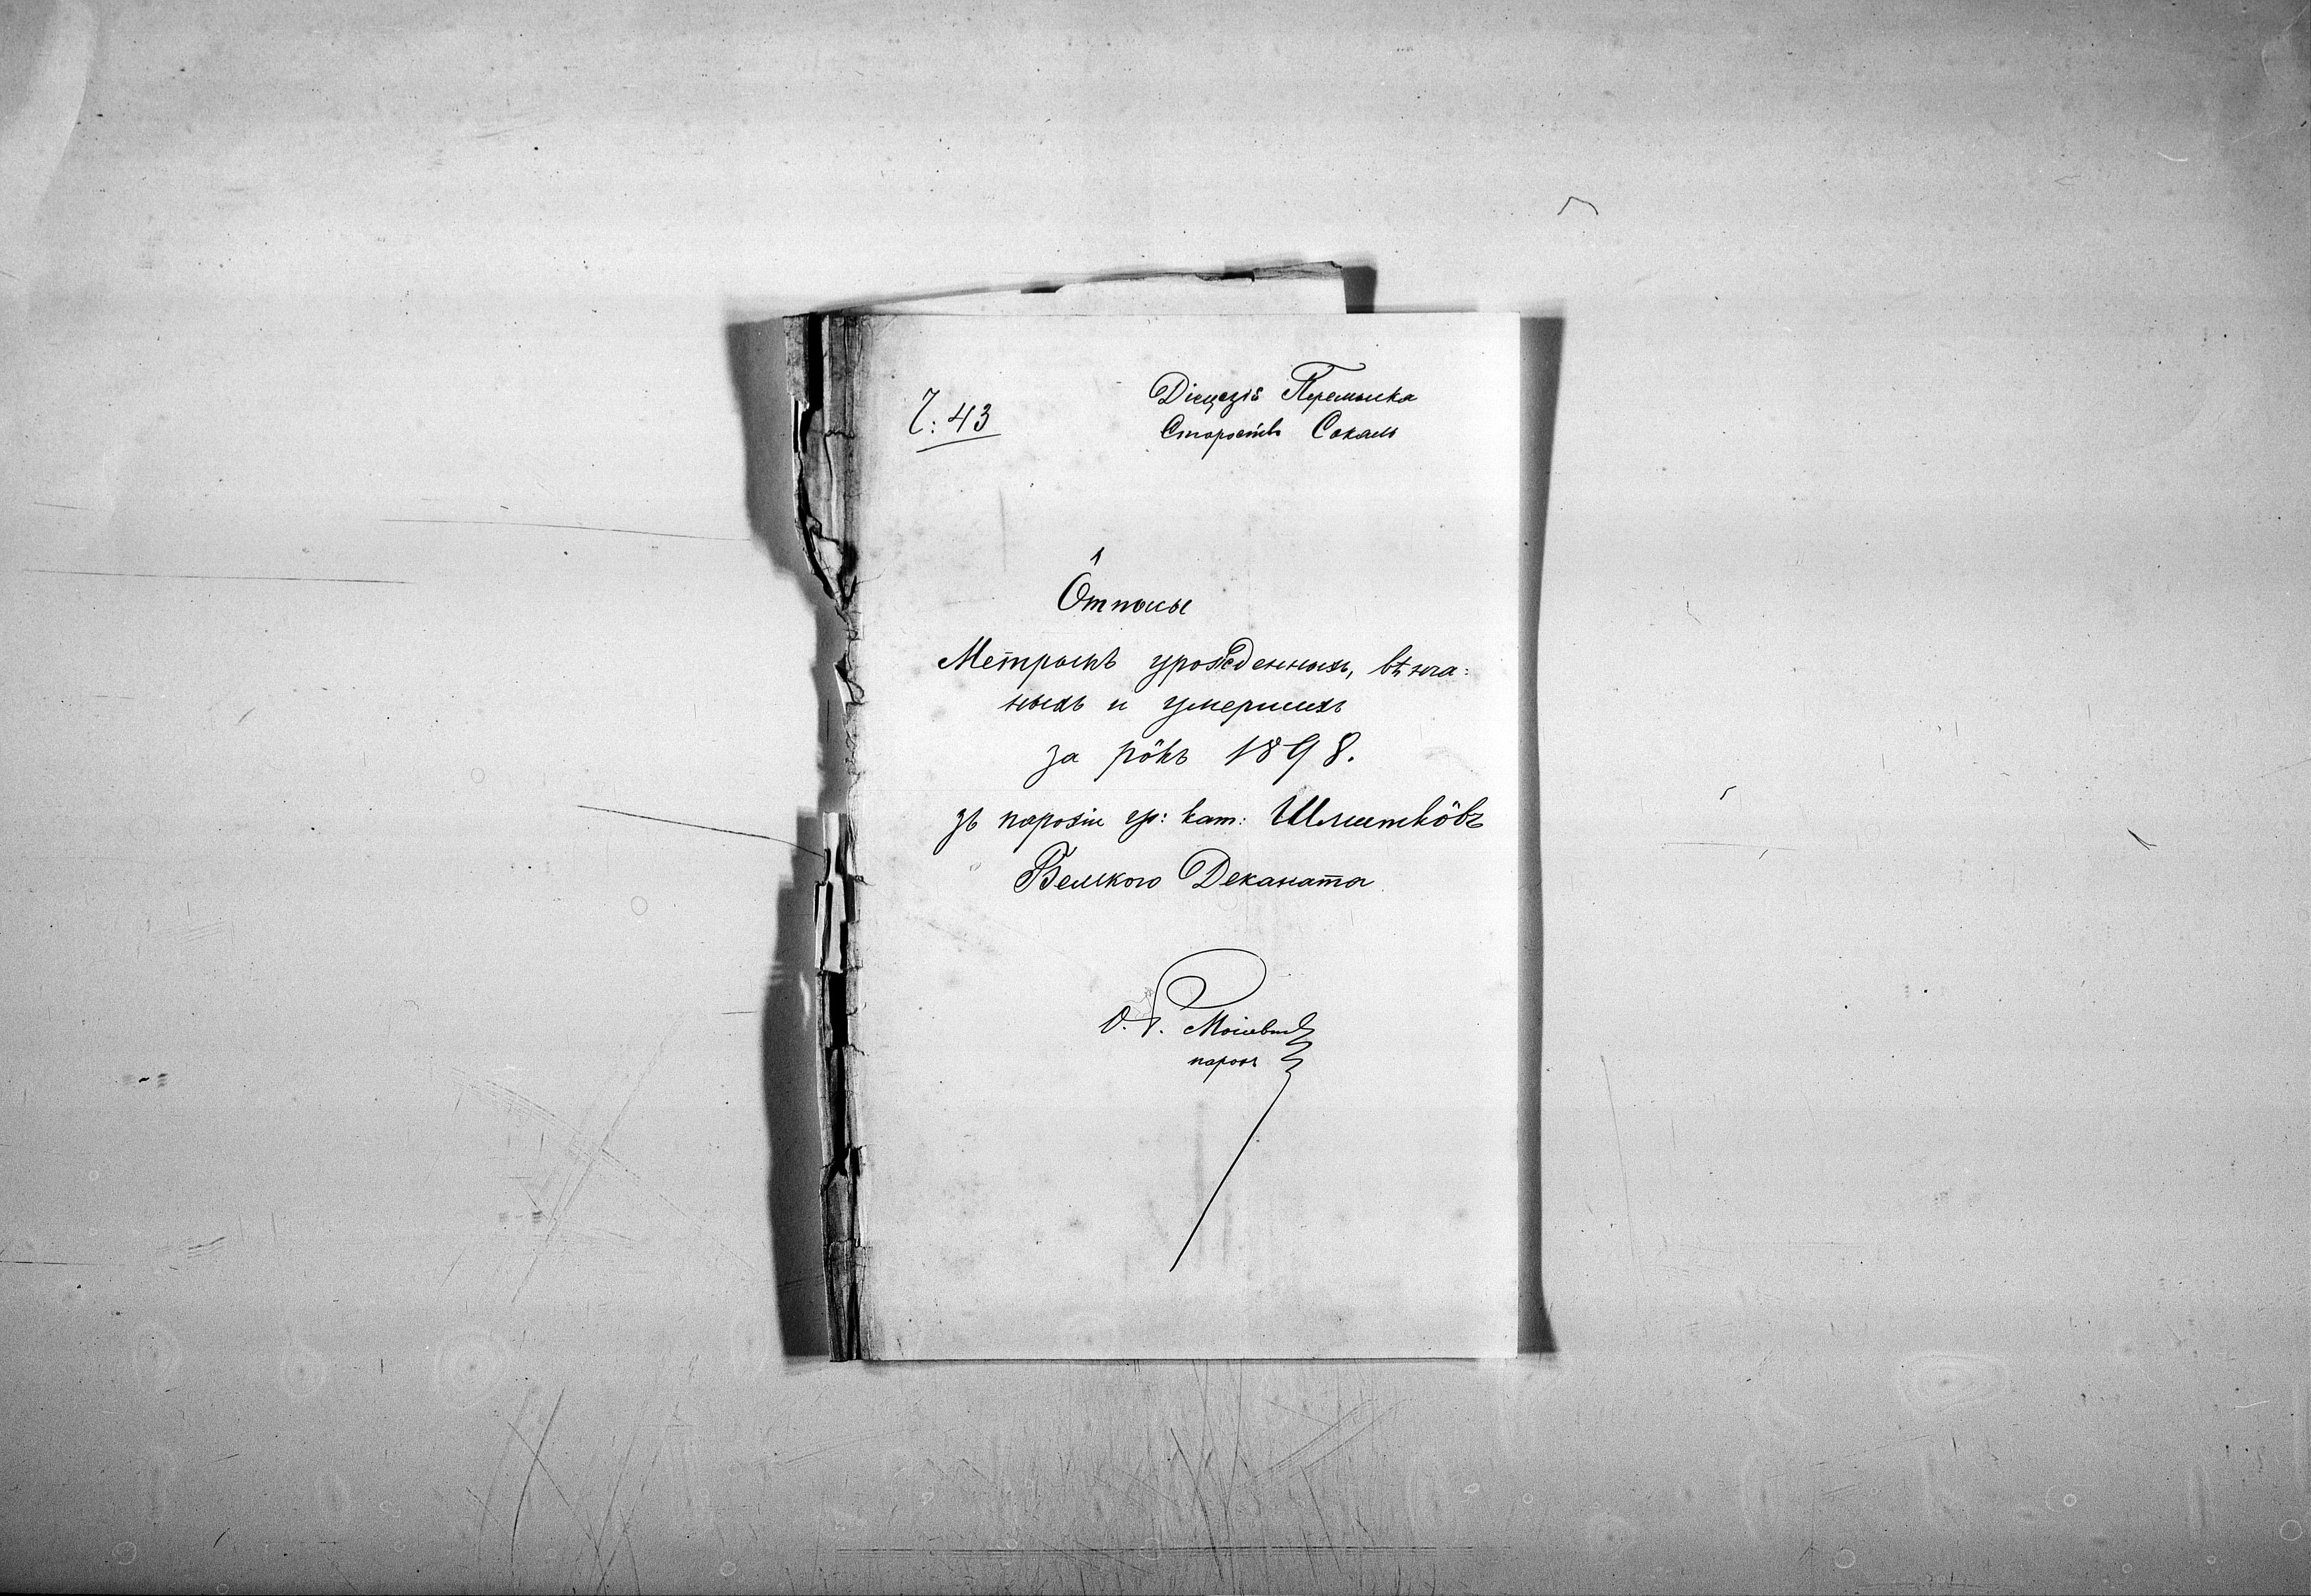 Ч: 43
Діецезія Перемыска
Староство Сокаль
Ôтписы
Метрыкъ урожденныхъ, вѣнча:
ныхъ и умершихъ
за рôкъ 1898.
зъ парохіи гр: кат: Шмиткôвъ
Белзкого Деканата
О. Г.
парох